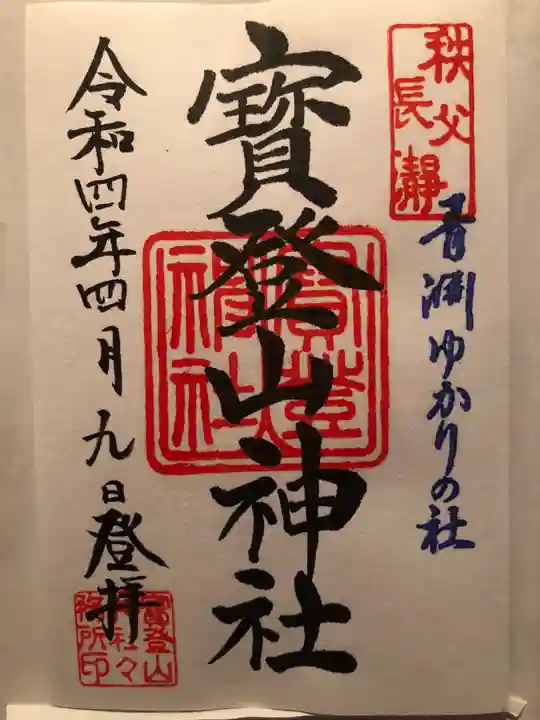 秩父
長瀞
青淵ゆかりの社
寳登山神社
寳登山
神社
令和四年四月九日登拝
寳登山
神社々
務所印